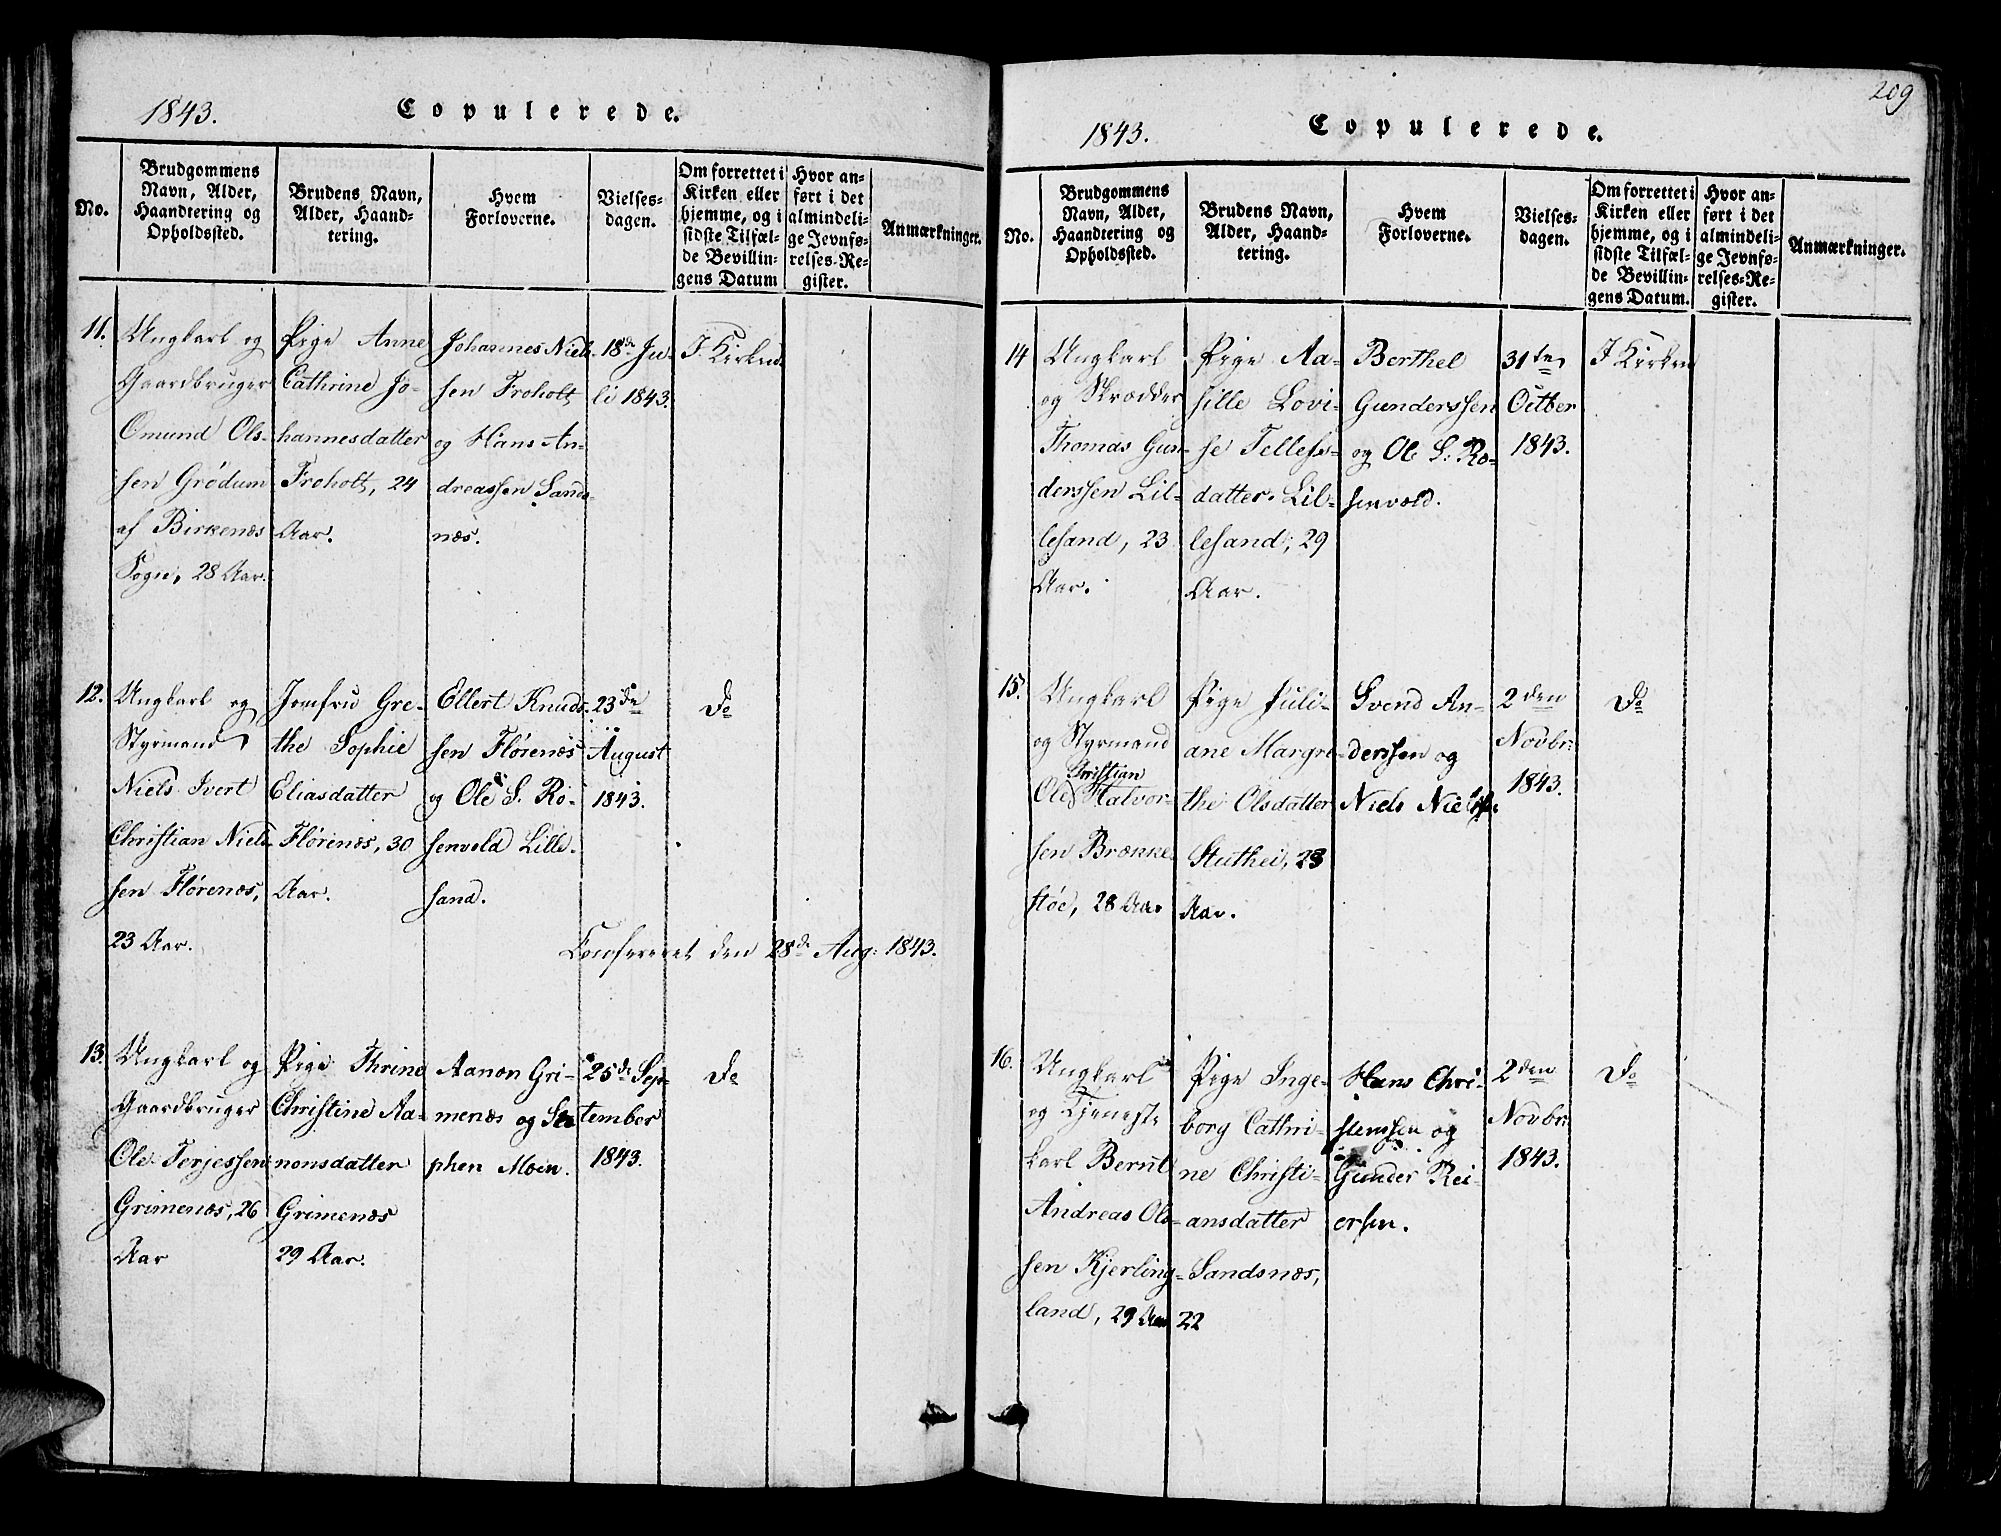 1843.
Copulerede.
No.
Brudgommens
Navn, Alder,
Haandtering og
Opholdssted.
Brudens Navn,
Alder, Haand-
tering.
Hvem
Forloverne.
Vielses-
dagen.
Om forrettet i
Kirken eller
hjemme, og i
sidste Tilfæl-
de Bevillin-
gens Datum
Hvor an-
ført i det
almindeli-
ge Jevnfø-
relses-Re-
gister.
Anmærkninger.
11.
Ungkarl og
Gaardbruger
Omund Ols-
sen Grödum
af Birkenæs
Sogn, 28 Aar.
Pige Anne
Cathrine Jo-
hannesdatter
Froholt, 24
Aar.
Johannes Niel-
sen Froholt
og Hans An-
dreassen Sands-
næs.
18de Ju-
li 1843.
I Kirken
12.
Ungkarl og
Styrmand
Niels Ivert
Christian Niel-
sen Flörenæs,
23 Aar.
Jomfru Gre-
the Sophie
Eliasdatter
Flörenæs, 30
Aar.
Ellert Knud-
sen Flörenæs
og Ole S. Ro-
senvold Lille-
sand.
23de
August
1843.
Do
Confereret den 28de Aug: 1843.
13.
Ungkarl og
Gaardbruger
Ole Terjessen
Grimenæs, 26
Aar
Pige Thrine
Christine Aa-
nonsdatter
Grimenæs
29 Aar.
Aanon Gri-
menæs og Ste
phen Moen.
25de Sep-
tember
1843.
Do
209
1843.
Copulerede.
No.
Brudgommens
Navn, Alder,
Haandtering og
Opholdssted.
Brudens Navn,
Alder, Haand-
tering.
Hvem
Forloverne.
Vielses-
dagen.
Om forrettet i
Kirken eller
hjemme, og i
sidste Tilfæl-
de Bevillin-
gens Datum.
Hvor an-
ført i det
almindeli-
ge Jevnfø-
relses-Re-
gister.
Anmærkninger.
14
Ungkarl
og Skrædder
Thomas Gun-
derssen Lil-
lesand, 23
Aar.
Pige Aa-
sille Lovi-
se Tellefs-
datter Lil-
lesand, 29
Aar.
Berthel
Gunderssen
og Ole S. Ro-
senvold.
31te
Octber
1843.
I Kirken
15.
Ungkarl
og Styrmand
Christian
Ole Halvor-
sen Brække-
stöe, 28 Aar
Pige Juli-
ane Margre-
the Olsdatter
Stuthei, 23
Aar.
Svend An-
derssen og
Niels Niels
2den
Novbr:
1843.
Do
16.
Ungkarl
og Tjeneste
karl Bernt
Andreas Ols-
sen Kjerling-
land, 29 Aar
Pige Inge-
borg Cathri-
ne Christi-
ansdatter
Sandsnæs,
22
Hans Chri-
stensen og
Gunder Rei-
ersen.
2den
Novbr:
1843.
Do